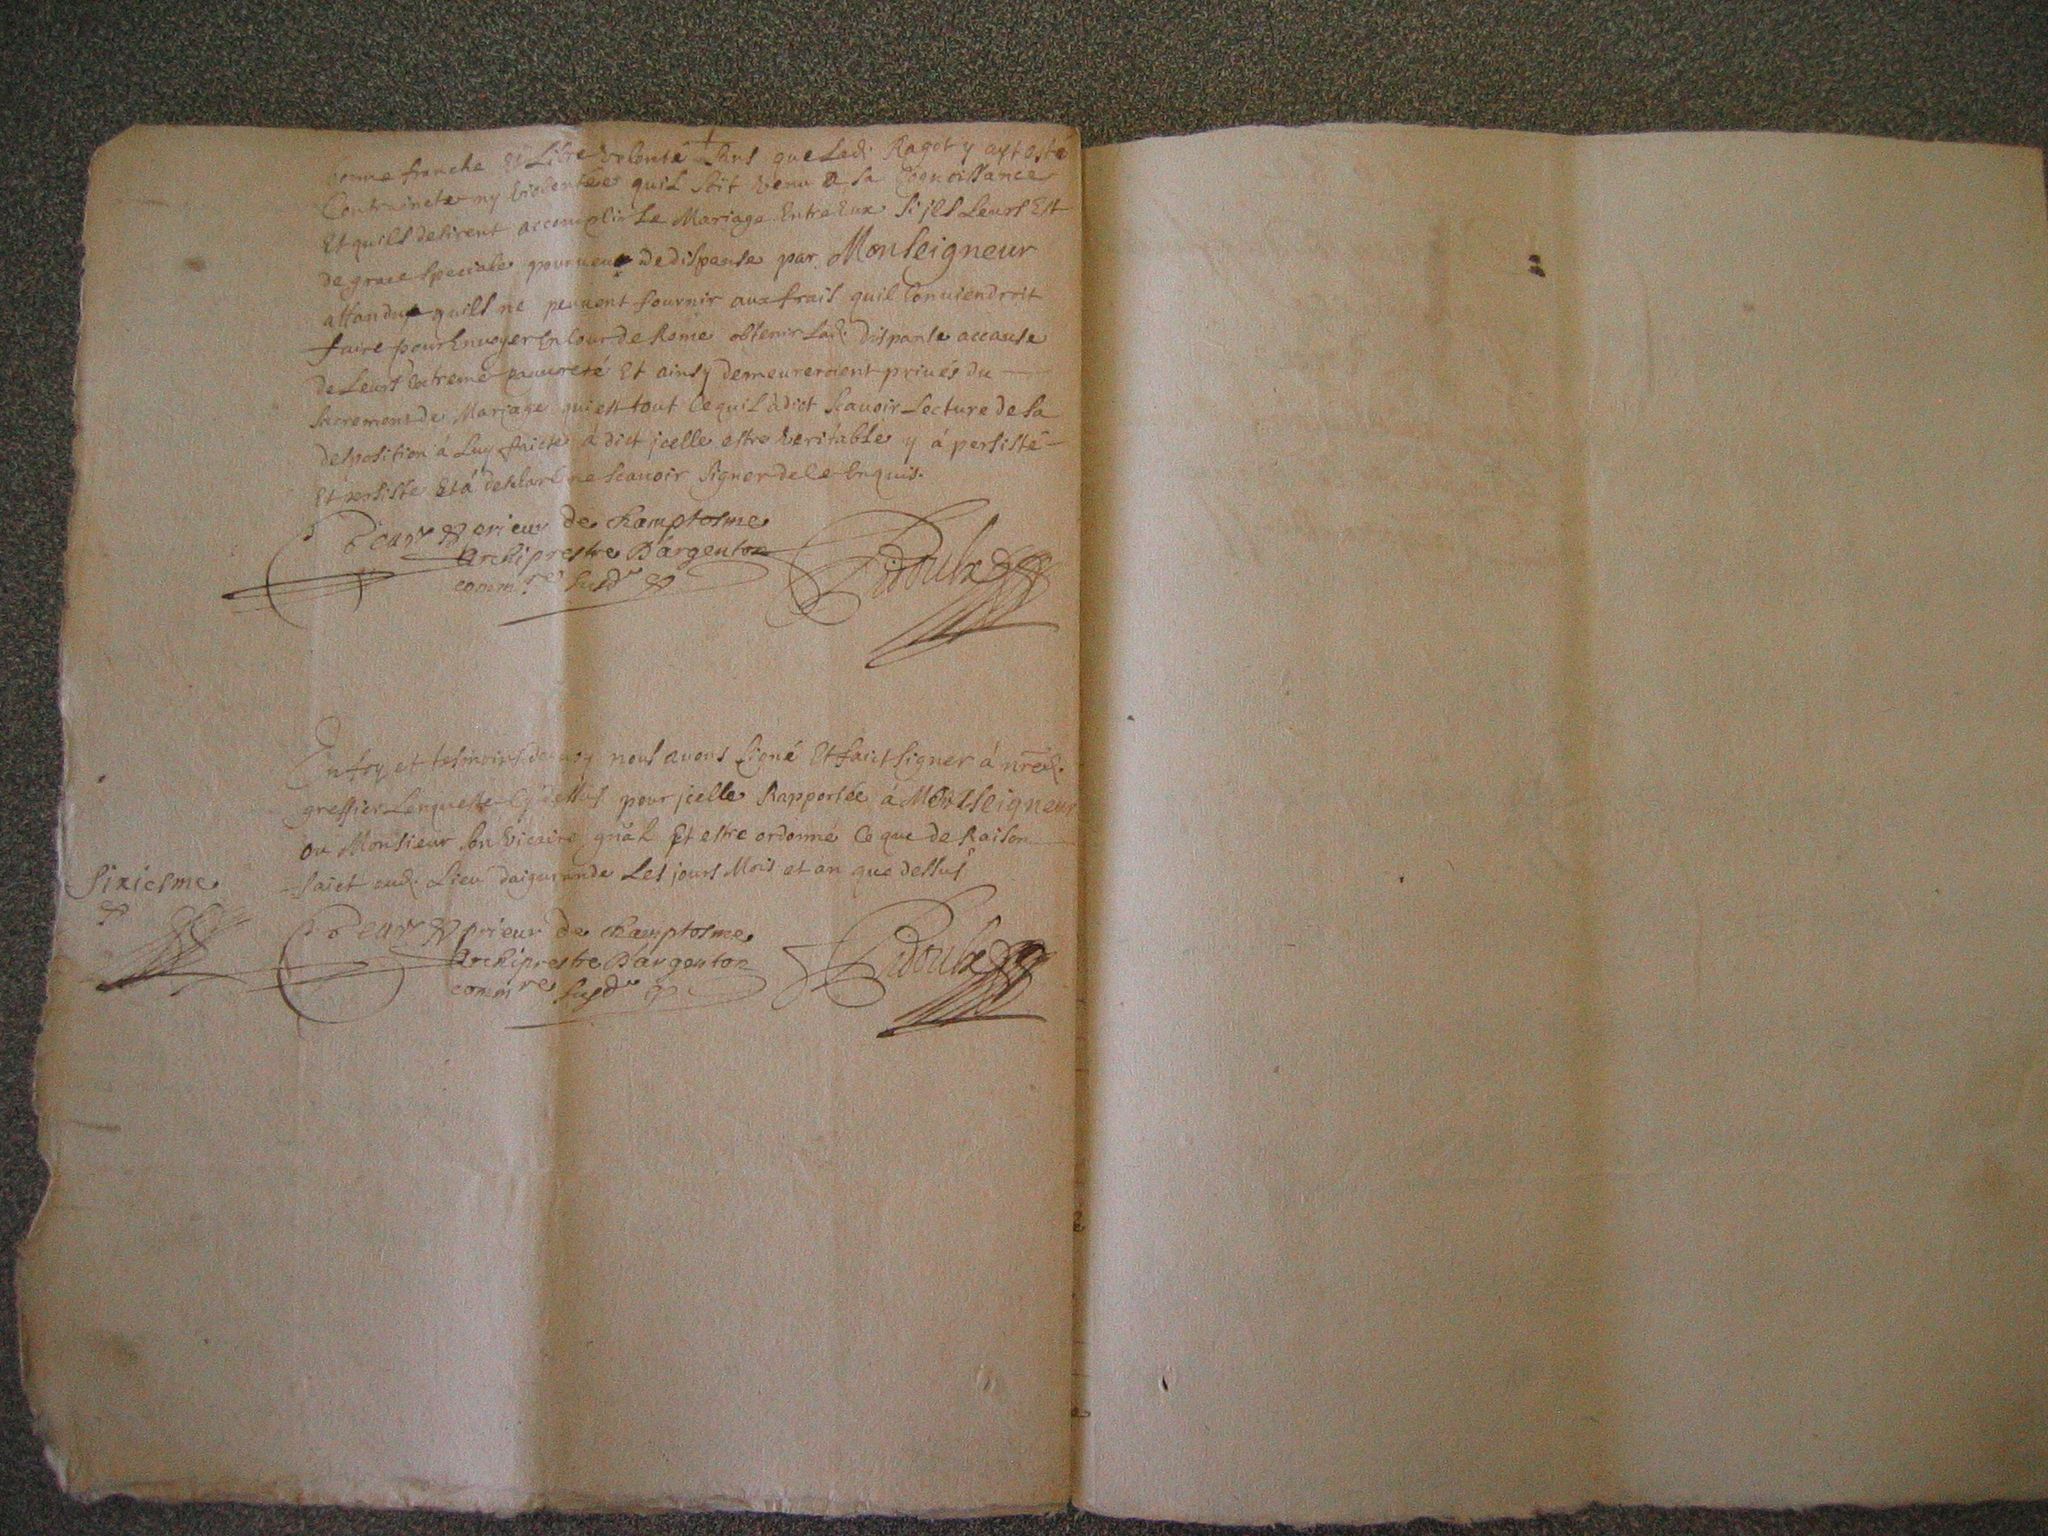 bonne franche et Libre volonté sans que Led. Ragot y ayt esté
Contrainte ny violentée quil soit venu a sa Cognoissance
Et quils desirent accomplir Le Mariage Entre Eux si jls Leurs Est
de grace speciale pourveu de dispanse par Monseigneur
attandu quils ne peuvent fournir aux frais quil Conviendroit
faire pour Envoyer En Cour de Rome obtenir Lad. dispanse accause
de Leurs Extreme pauvreté Et ainsy demeureroient privés du
sacrement de Mariage qui est tout Ce quil à dict scavoir Lecture de sa
desposition à Luy faicte à dict jcelle estre veritable y à persisté
Et persiste Et à declaré ne scavoir signer de ce Enquis.
prieur de Champtosme
Archiprestre D'argenton
comm.re susd.
En foy et tesmoins de quoy nous avons signé Et faict signer à nre d.
greffier Lenqueste Cy dessus pour jcelle Rapportée à Monseigneur
ou Monsieur son vicaire gnâl Et estre ordonné Ce que de Raison
faict aud. Lieu daigurande Les jours Mois et an que dessus
Sixiesme
prieur de Champtosme
Archiprestre D'argenton
comm.re susd.